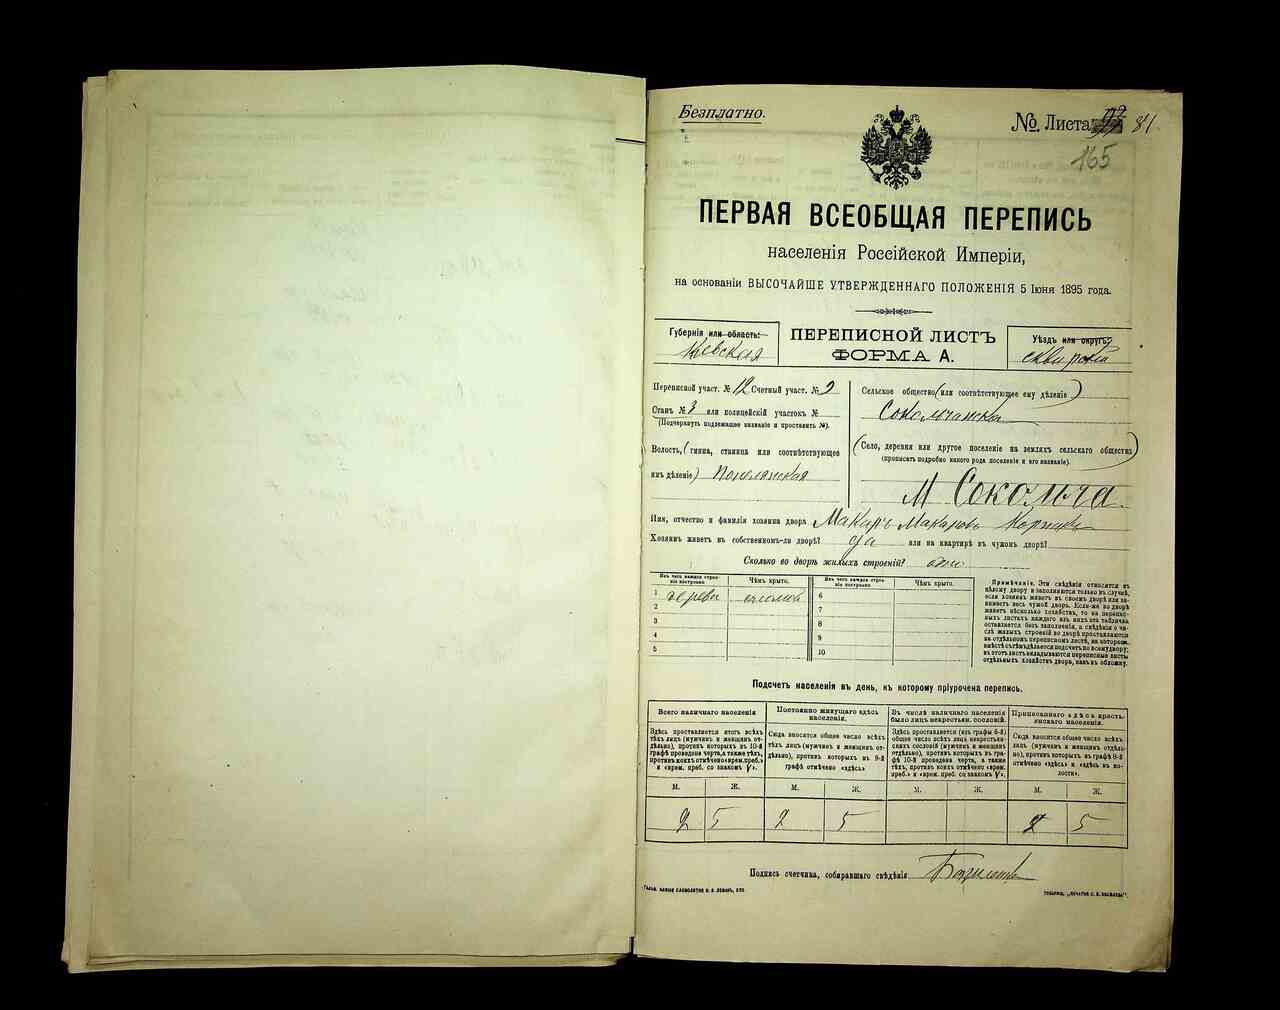 Безплатно.
№ Листа 84.
165
ПЕРВАЯ ВСЕОБЩАЯ ПЕРЕПИСЬ
населенія Россійской Имперіи,
на основаніи ВЫСОЧАЙШЕ УТВЕРЖДЕННАГО ПОЛОЖЕНІЯ 5 Іюня 1895 года.
Губернія или область:
Кіевская
ПЕРЕПИСНОЙ ЛИСТЪ
ФОРМА А.
Уѣздъ или округъ:
Сквирскій
Переписной участ. № 12 Счетный участ. № 2
Станъ № 3 или полицейскій участокъ №
(Подчеркнуть подлежащее названіе и проставить №).
Волость, (гмина, станица или соотвѣтствующее
имъ дѣленіе)
Сельское общество (или соотвѣтствующее ему дѣленіе)
Сокольчанское
(Село, деревня или другое поселеніе на земляхъ сельскаго общества)
(прописать подробно какого рода поселеніе и его названіе).
М Сокольча
Имя, отчество и фамилія хозяина двора Макаръ Макаровъ
Хозяинъ живетъ въ собственномъ-ли дворѣ? да или на квартирѣ въ чужомъ дворѣ?
Сколько во дворѣ жилыхъ строеній? одно
Изъ чего каждое строеніе построено Чѣмъ крыто. Изъ чего каждое строеніе построено Чѣмъ крыто.
1 дерева солома 6
2 7
3 8
4 9
5 10
Примѣчаніе. Эти свѣдѣнія относятся къ
цѣлому двору и заполняются только въ случаѣ,
если хозяинъ живетъ въ своемъ дворѣ или за-
нимаетъ весь чужой дворъ. Если-же во дворѣ
живетъ нѣсколько хозяйствъ, то на перепис-
ныхъ листахъ каждаго изъ нихъ эта табличка
оставляется безъ заполненія, а свѣдѣнія о чи-
слѣ жилыхъ строеній во дворѣ проставляются
на отдѣльномъ переписномъ листѣ, на которомъ
вмѣстѣ съ тѣмъ дѣлается подсчетъ по всему двору;
въ этотъ листъ вкладываются переписные листы
отдѣльныхъ хозяйствъ двора, какъ въ обложку.
Подсчетъ населенія въ день, къ которому пріурочена перепись.
Всего наличнаго населенія
Здѣсь проставляется итогъ всѣхъ
тѣхъ лицъ (мужчинъ и женщинъ от-
дѣльно), противъ которыхъ въ 10-й
графѣ проведена черта, а также тѣхъ,
противъ коихъ отмѣчено «врем. преб.»
и «врем. преб. со знакомъ V».
Постоянно живущаго здѣсь
населенія.
Сюда вносится общее число всѣхъ
тѣхъ лицъ (мужчинъ и женщинъ от-
дѣльно), противъ которыхъ въ 9-й
графѣ отмѣчено «здѣсь»
Въ числѣ наличнаго населенія
было лицъ некрестьян. сословій.
Здѣсь проставляется (изъ графы 6-й)
общее число всѣхъ лицъ некрестьян-
скихъ сословій (мужчинъ и женщинъ
отдѣльно), противъ которыхъ въ гра-
фѣ 10-й проведена черта, а также
тѣхъ, противъ коихъ отмѣчено «врем.
преб.» и «врем. преб. со знакомъ V».
Приписаннаго здѣсь кресть-
янскаго населенія.
Сюда вносится общее число всѣхъ
лицъ (мужчинъ и женщинъ отдѣль-
но), противъ которыхъ въ графѣ 8-й
отмѣчено «здѣсь» и «здѣсь въ во-
лости».
М. Ж. М. Ж. М. Ж. М. Ж.
2 5 2 5 2 5
Подпись счетчика, собиравшаго свѣдѣнія